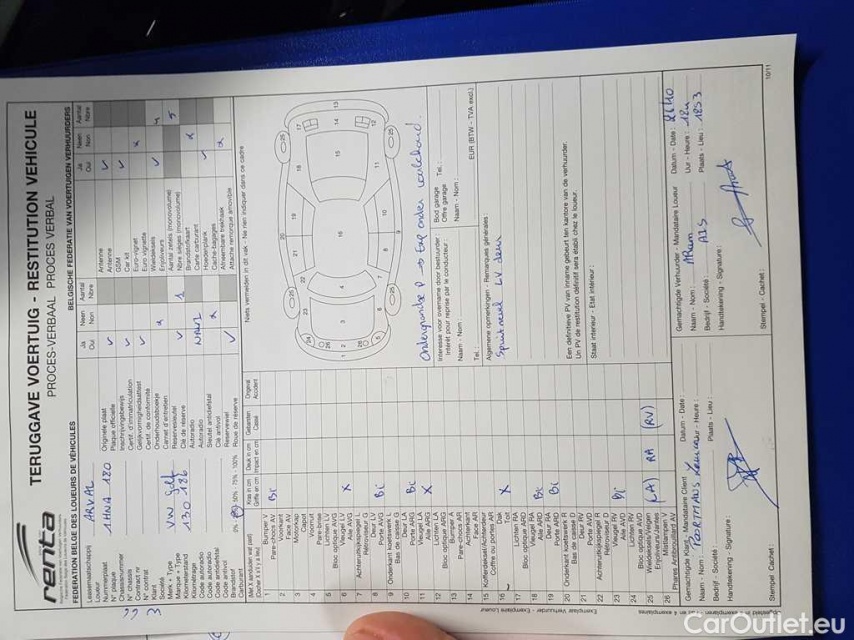 renta
TERUGGAVE VOERTUIG - RESTITUTION VEHICULE
PROCES-VERBAAL PROCES VERBAL
FEDERATION BELGE DES LOUEURS DE VEHICULES
BELGISCHE FEDERATIE VAN VOERTUIGEN VERHUURDERS
Leasemaatschappij
Loueur
ARVAL
Nummerplaat
N° plaque
1HNA 120
Chassisnummer
N° châssis
Contract nr
N° contrat
Klant
Société
Merk + Type
Marque + Type
VW Golf
Kilometerstand
Kilométrage
Code autoradio
Code autoradio
Code antidiefstal
Code antivol
Brandstof
Carburant
0% - 50% - 75% - 100%
Ja Neen Aantal
Oui Non Nbre
Originele plaat
Plaque officielle
Inschrijvingsbewijs
Certif. d'immatriculation
Gelijkvormigheidsattest
Certif. de conformité
Onderhoudsboekje
Carnet d'entretien
Reservesleutel
Clé de réserve
1
Autoradio
Autoradio
Sleutel antidiefstal
Clé antivol
Reservewiel
Roue de réserve
Ja Neen Aantal
Oui Non Nbre
Antenne
Antenne
GSM
Car kit
Euro-vignet
Euro vignette
Wieldeksels
Enjoliveurs
4
Aantal zetels (monovolume)
Nbre sièges (monovolume)
5
Brandstofkaart
Carte carburant
Hoedenplank
Cache-bagages
Afneembare trekhaak
Attache remorque amovible
Kras in cm
Griffe en cm
Deuk in cm
Impact en cm
Gebarsten
Cassé
Ongeval
Accident
1 Bumper V
Pare-chocs AV
2 Voorkant
Face AV
3 Motorkap
Capot
4 Voorruit
Pare-brise
5 Lichten LV
Bloc optique AVG
6 Vleugel LV
Aile AVG
x
7 Achteruitkijkspiegel L
Rétroviseur G
8 Deur LV
Porte AVG
9 Onderkant koetswerk L
Bas de caisse G
10 Deur LA
Porte ARG
11 Vleugel LA
Aile ARG
x
12 Lichten LA
Bloc optique ARG
13 Bumper A
Pare-chocs AR
14 Achterkant
Face AR
15 Kofferdeksel/Achterdeur
Coffre ou portière AR
16 Dak
Toit
17 Lichten RA
Bloc optique ARD
18 Vleugel RA
Aile ARD
19 Deur RA
Porte ARD
20 Onderkant koetswerk R
Bas de caisse D
21 Deur RV
Porte AVD
22 Achteruitkijkspiegel R
Rétroviseur D
23 Vleugel RV
Aile AVD
24 Lichten RV
Bloc optique AVD
25 Wieldeksels/Velgen
Enjoliveurs/Jantes
(LA) RA (RV)
26 Mistlampen V
Phares Antibrouillard AV
Niets vermelden in dit vak - Ne rien indiquer dans ce cadre
Interesse voor overname door bestuurder
Intérêt pour reprise par le conducteur :
Naam - Nom :
Tel. :
Bod garage
Offre garage
Tel. :
Naam - Nom :
EUR (BTW - TVA excl.)
Algemene opmerkingen - Remarques générales :
LV deur
Een definitieve PV van inname gebeurt ten kantore van de verhuurder.
Un PV de restitution définitif sera établi chez le loueur.
Staat interieur - Etat intérieur :
Gemachtigde Klant - Mandataire Client
Datum - Date :
Naam - Nom :
Uur - Heure :
Bedrijf - Société :
Plaats - Lieu :
Handtekening - Signature :
Stempel - Cachet :
Gemachtigde Verhuurder - Mandataire Loueur
Datum - Date :
Naam - Nom :
Uur - Heure :
Bedrijf - Société : AIS
Plaats - Lieu : 1853
Handtekening - Signature :
Stempel - Cachet :
Exemplaar Verhuurder - Exemplaire Loueur
10/11
CarOutlet.eu